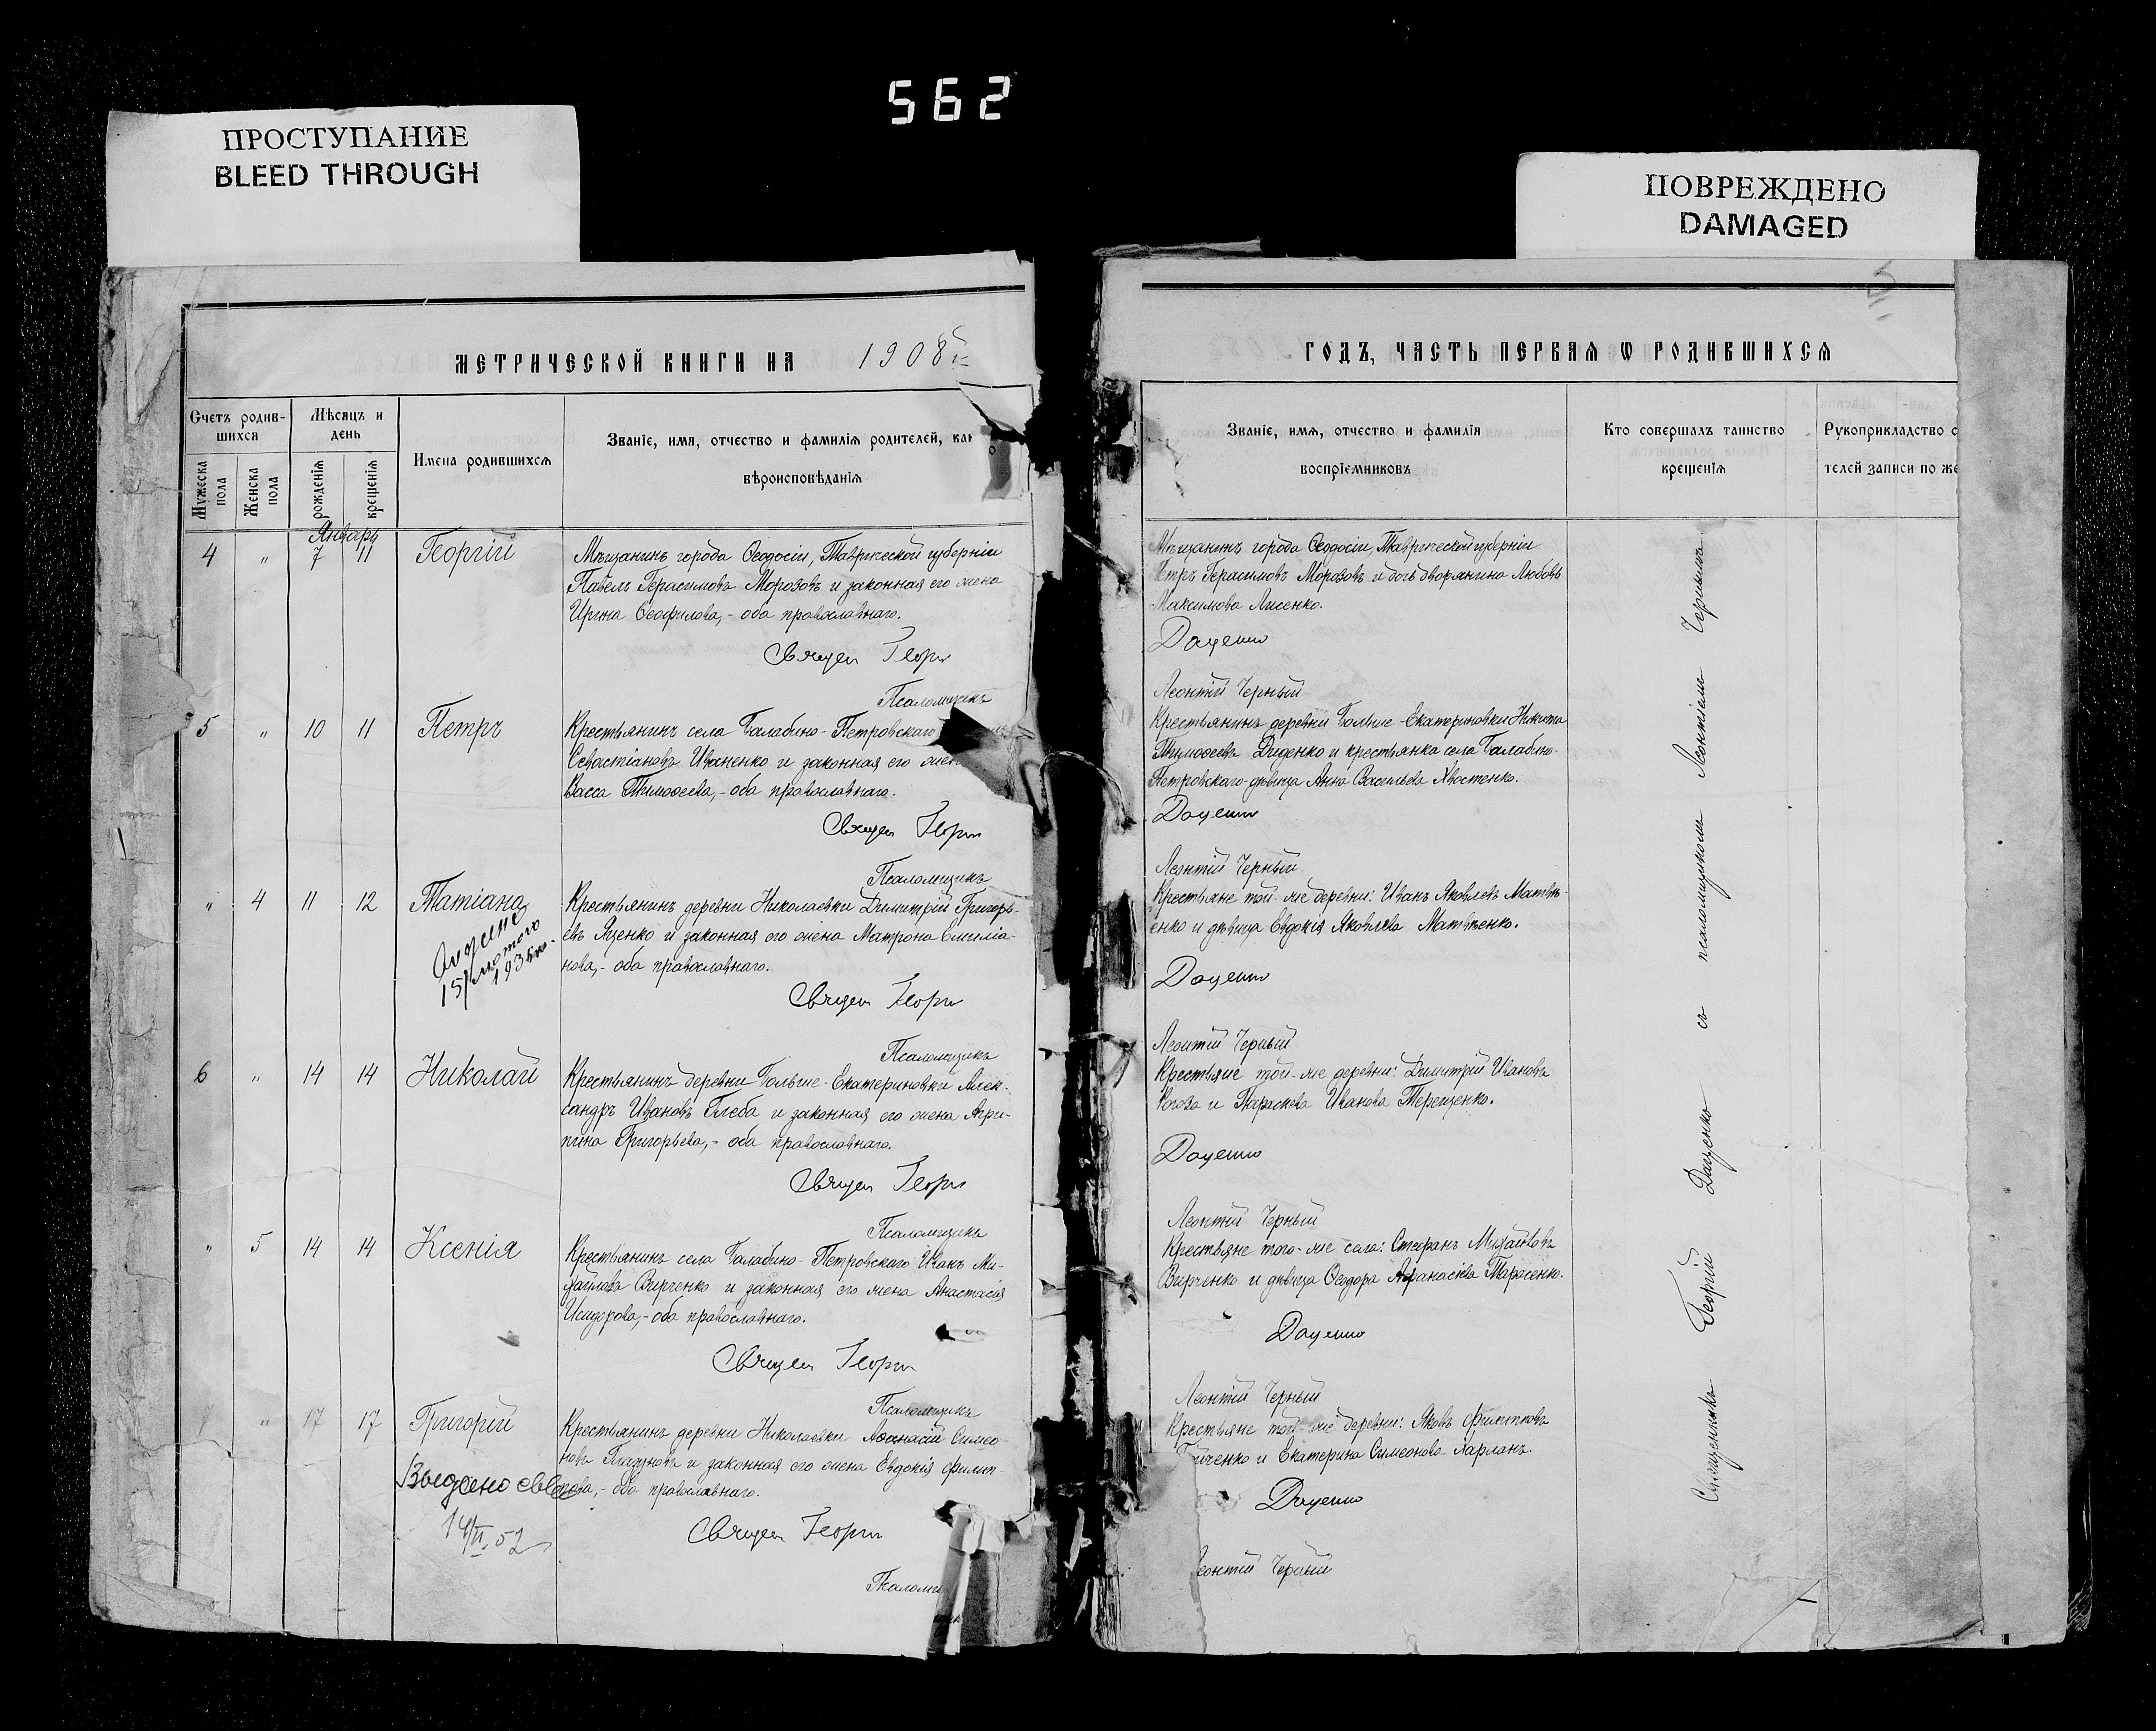 562
ПРОСТУПАНИЕ
BLEED THROUGH
ПОВРЕЖДЕНО
DAMAGED
МЕТРИЧЕСКОЙ КНИГИ НА 1908
Счетъ родив-
шихся
Мужеска пола
Женска пола
Мѣсяцъ и
день
рожденія
крещенія
Имена родившихся
Званіе, имя, отчество и фамилія родителей, как
вѣроисповѣданія
Январь
4 " 7 11 Георгій
Мѣщанинъ города Ѳеодосіи, Таврической губерніи
Павелъ Герасимовъ Морозовъ и законная его жена
Ирина Ѳеофилова,- оба православнаго.
Священ Георг
Псаломщикъ
5 " 10 11 Петръ
Крестьянинъ села Балабино-Петровскаго
Севастіановъ Иваненко и законная его жен
Васса Тимоѳеева,- оба православнаго.
Священ Георг
Псаломщикъ
" 4 11 12 Татіана
Крестьянинъ деревни Николаевки Димитрій Григорь-
евъ Яценко и законная его жена Матрона Емиліа-
нова,- оба православнаго.
15/лютого
Священ Георг
Псаломщикъ
6 " 14 14 Николай
Крестьянинъ деревни Больше-Екатериновки Алек-
сандръ Ивановъ Глеба и законная его жена Агри-
пина Григорьева,- оба православнаго.
Священ Георг
Псаломщикъ
" 5 14 14 Ксенія
Крестьянинъ села Балабино-Петровскаго Иванъ Ми-
хайловъ Вирченко и законная его жена Анастасія
Исидорова,- оба православнаго.
Священ Георг
Псаломщикъ
" 17 17 Григорій
Крестьянинъ деревни Николаевки Аѳанасій Симео-
новъ Глазуновъ и законная его жена Евдокія Филип-
пова,- оба православнаго.
14/II.52
Священ Георг
Псаломщ
ГОДЪ, ЧАСТЬ ПЕРВАЯ Ѡ РОДИВШИХСЯ
Званіе, имя, отчество и фамилія
воспріемниковъ
Кто совершалъ таинство
крещенія
Рукоприкладство с
телей записи по же
Мѣщанинъ города Ѳеодосіи, Таврической губерніи
Петръ Герасимовъ Морозовъ и дочь дворянина Любовь
Максимова Лисенко.
Даценко
Леонтій Черный
Крестьянинъ деревни Больше-Екатериновки Никита
Тимоѳеевъ Диденко и крестьянка села Балабино-
Петровскаго дѣвица Анна Васильева Хвостенко.
Даценко
Леонтій Черный
Крестьяне той-же деревни: Иванъ Яковлевъ Матвѣ-
енко и дѣвица Евдокія Яковлева Матвѣенко.
Даценко
Леонтій Черный
Крестьяне той-же деревни: Димитрій Ивановъ
Рогоза и Параскева Иванова Терещенко.
Даценко
Леонтій Черный
Крестьяне того-же села: Стефанъ Михайловъ
Вирченко и дѣвица Ѳеодора Афанасіева Тарасенко.
Даценко
Леонтій Черный
Крестьяне той-же деревни: Яковъ Филипповъ
и Екатерина Симеонова Харланъ.
Даценко
Леонтій Черный
Священникъ Георгій Даценко съ псаломщикомъ Леонтіемъ Чернымъ